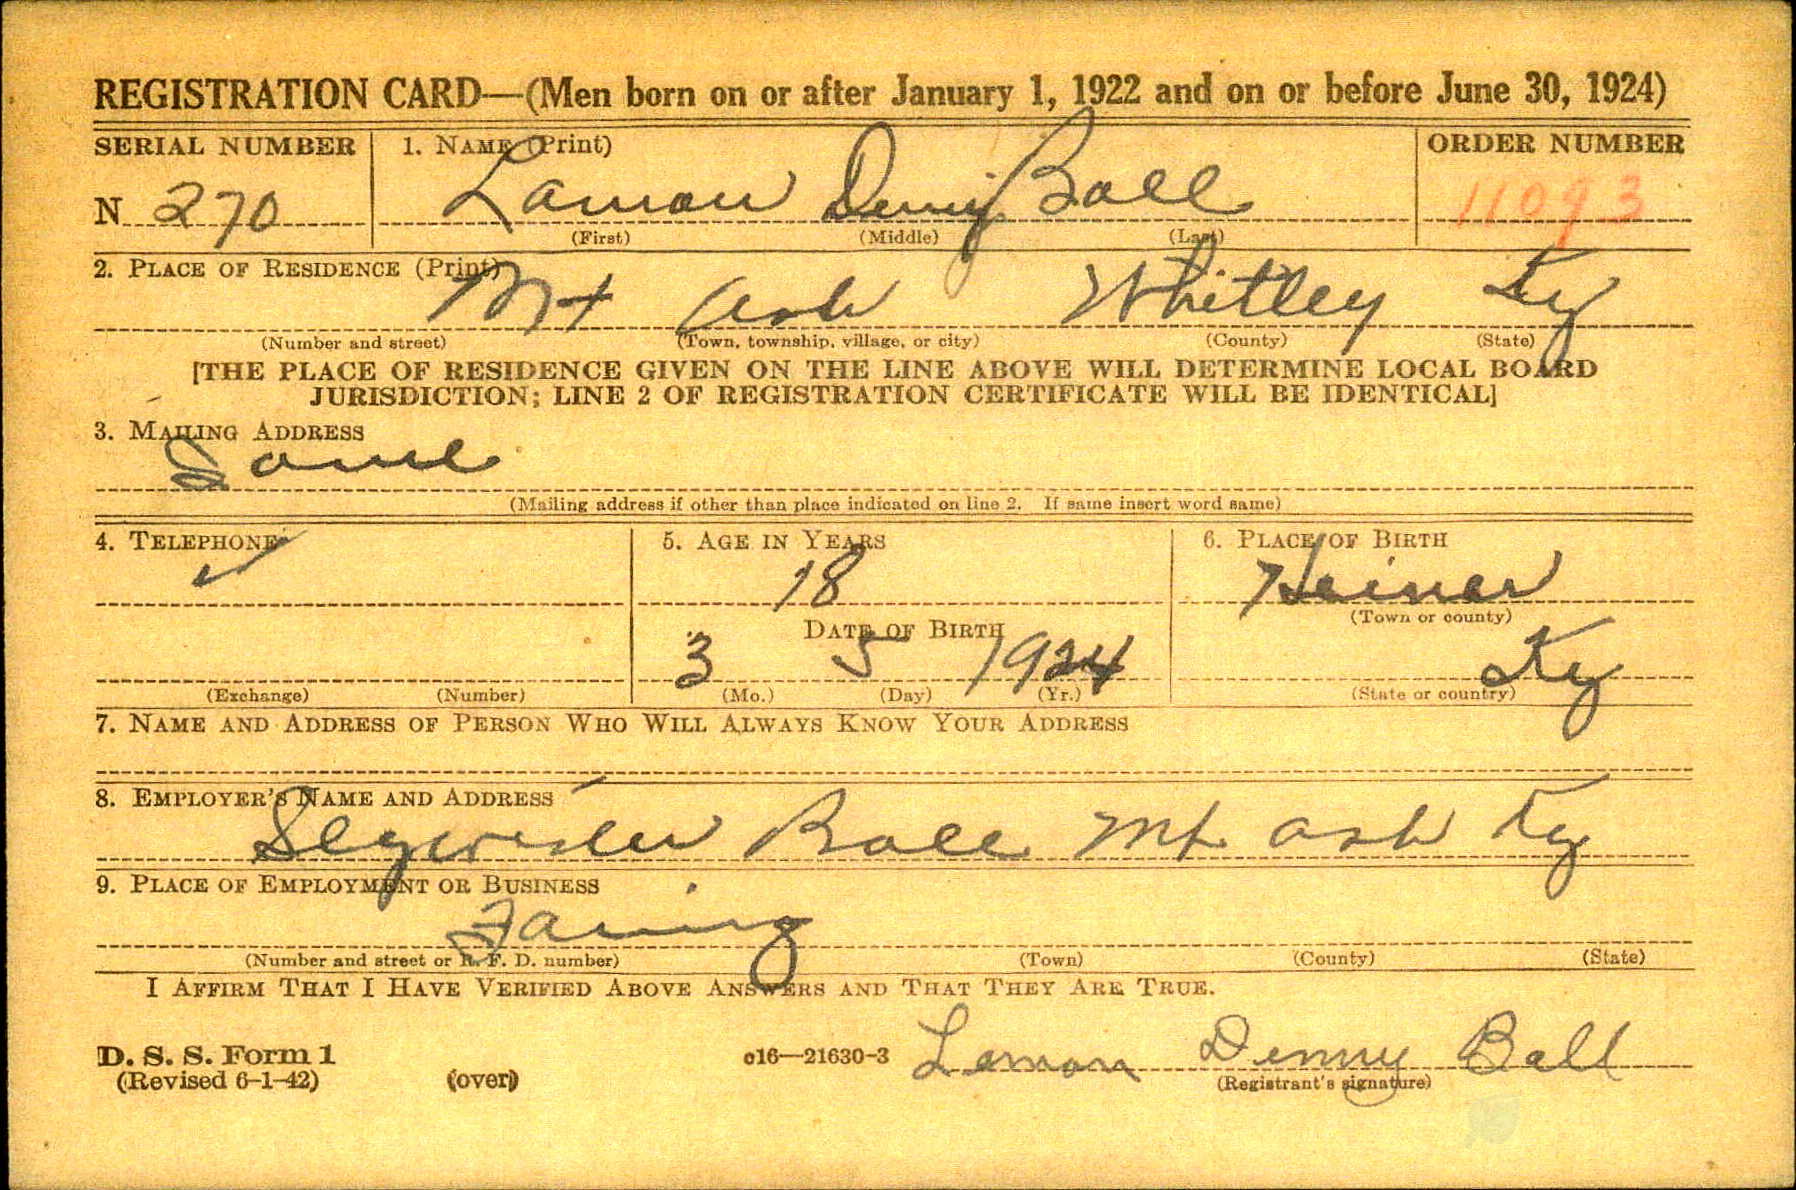 REGISTRATION CARD—(Men born on or after January 1, 1922 and on or before June 30, 1924)
SERIAL NUMBER 1. NAME (Print) ORDER NUMBER
N 270 Lamon Denny Ball 11093
(First) (Middle) (Last)
2. PLACE OF RESIDENCE (Print)
Mt Ash Whitley Ky
(Number and street) (Town, township, village, or city) (County) (State)
[THE PLACE OF RESIDENCE GIVEN ON THE LINE ABOVE WILL DETERMINE LOCAL BOARD
JURISDICTION; LINE 2 OF REGISTRATION CERTIFICATE WILL BE IDENTICAL]
3. MAILING ADDRESS
Same
(Mailing address if other than place indicated on line 2. If same insert word same)
4. TELEPHONE 5. AGE IN YEARS 6. PLACE OF BIRTH
18 Heiner
(Town or county)
DATE OF BIRTH
3 5 1924 Ky
(Exchange) (Number) (Mo.) (Day) (Yr.) (State or country)
7. NAME AND ADDRESS OF PERSON WHO WILL ALWAYS KNOW YOUR ADDRESS
8. EMPLOYER'S NAME AND ADDRESS
Ball Mt Ash Ky
9. PLACE OF EMPLOYMENT OR BUSINESS
(Number and street or R. F. D. number) (Town) (County) (State)
I AFFIRM THAT I HAVE VERIFIED ABOVE ANSWERS AND THAT THEY ARE TRUE.
D. S. S. Form 1 c16—21630-3 Lamon Denny Ball
(Revised 6-1-42) (over) (Registrant's signature)